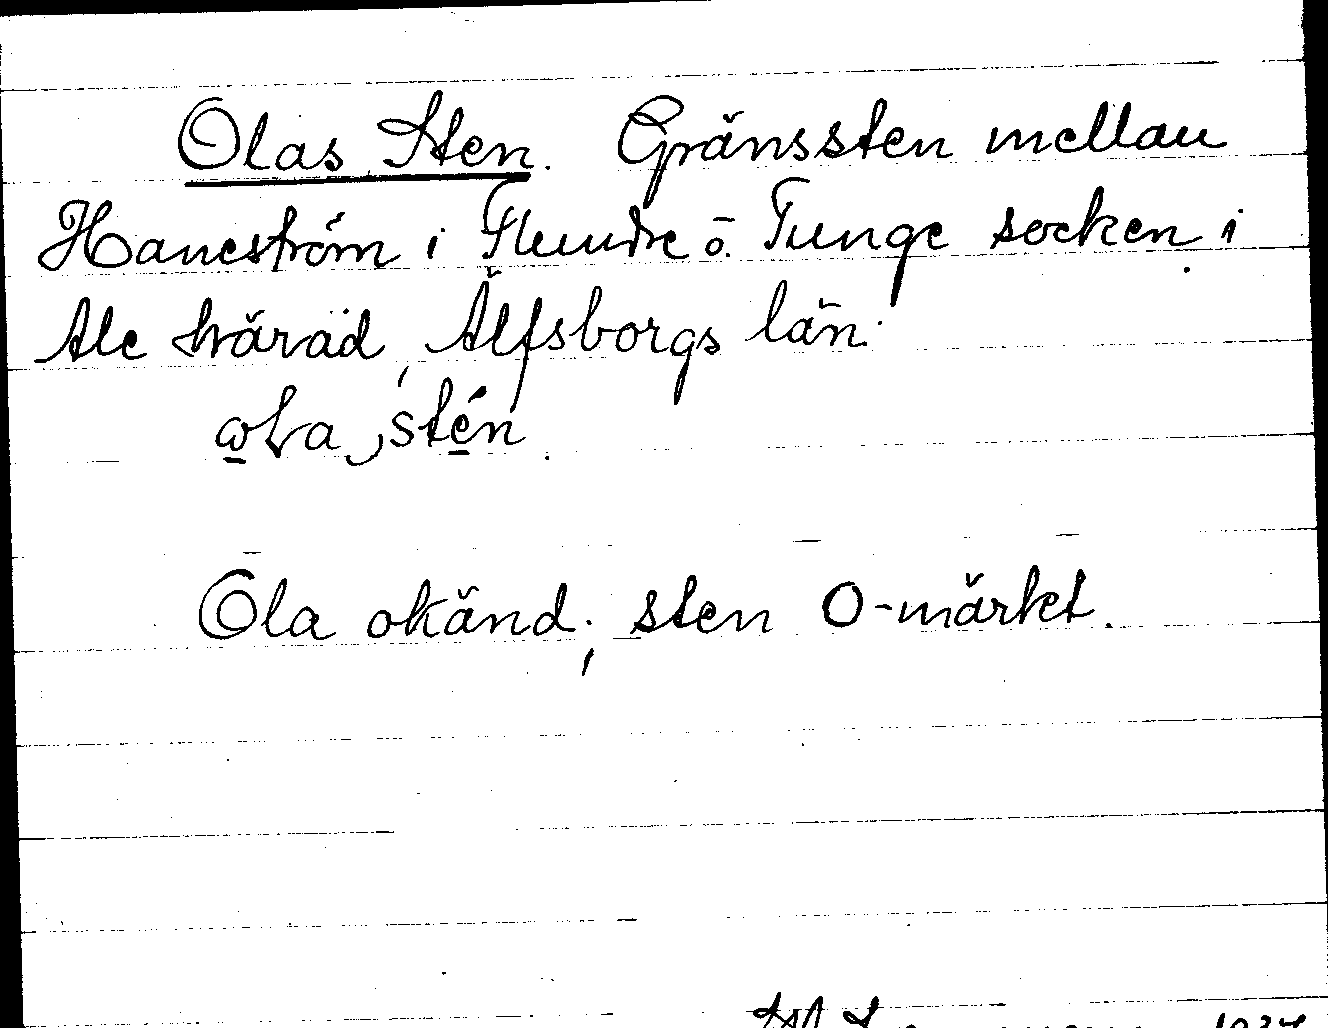 Olas Sten. Gränssten mellan
Haneström i Flundre o. Tunge socken i
Ale härad, Älfsborgs län.
sten
Ola okänd; sten O-märket.